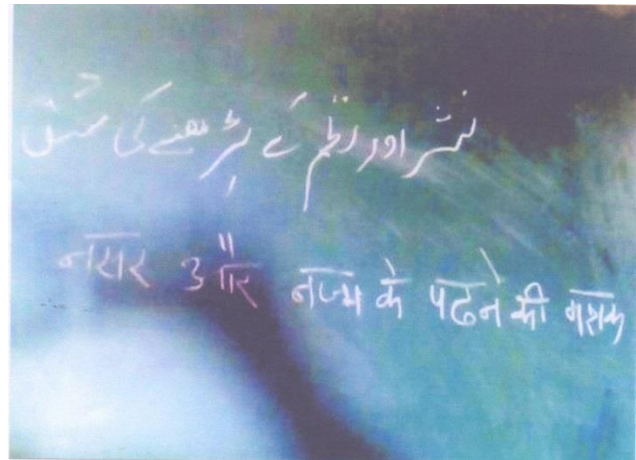 نثر اور نظم کے پڑھنے کی مشق
नसर और नज्म के पढने की मशक